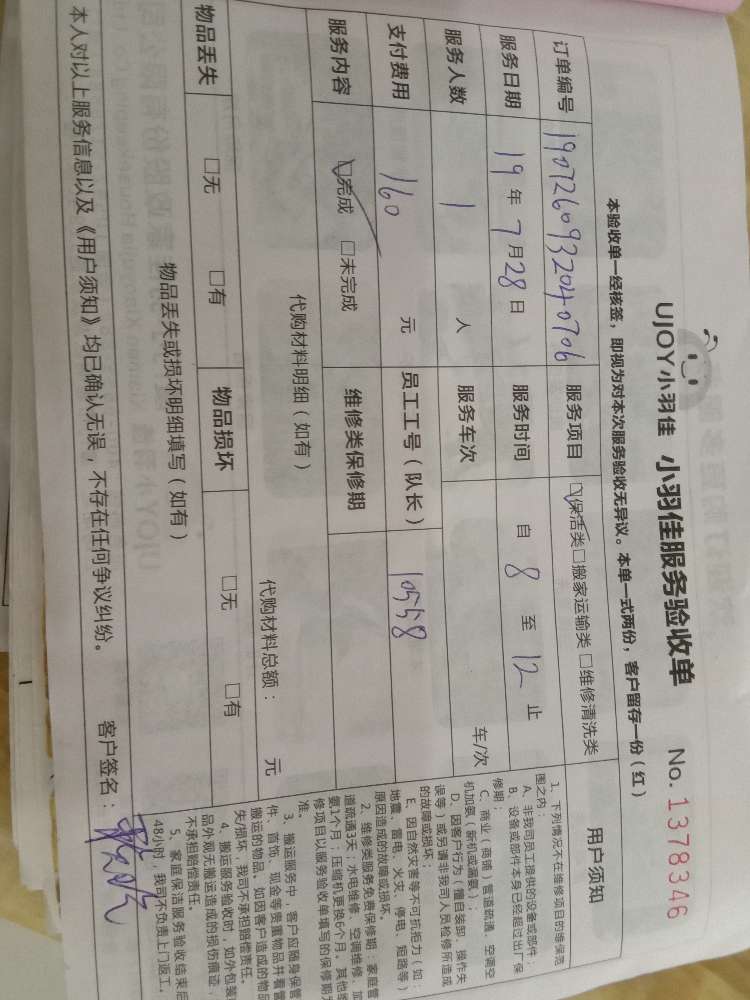 UJOY小羽佳 小羽佳服务验收单 No. 1378346
本验收单一经核签，即视为对本次服务验收无异议。本单一式两份，客户留存一份（红）
订单编号 1907260932040706 服务项目 ☑保洁类 □搬家运输类 □维修清洗类
服务日期 19 年 7 月 28 日 服务时间 自 8 至 12 止
服务人数 1 人 服务车次 车/次
支付费用 160 元 员工工号（队长） 10558
服务内容 ☑完成 □未完成 维修类保修期
代购材料明细（如有）
代购材料总额： 元
物品丢失 □无 □有 物品损坏 □无 □有
物品丢失或损坏明细填写（如有）
本人对以上服务信息以及《用户须知》均已确认无误，不存在任何争议纠纷。 客户签名：
用户须知
1、下列情况不在维修项目的维保范
围之内：
A、非我司员工提供的设备或部件；
B、设备或部件本身已经超过出厂保
修期；
C、商业（商铺）管道疏通、空调空
机加氨（新机或漏氨）；
D、因客户行为（擅自装卸、操作失
误等）或另请非我司人员检修所造成
的故障或损坏；
E、因自然灾害等不可抗拒力（如：
地震、雷电、火灾、停电、短路等）
原因造成的故障或损坏。
2、维修类服务免费保修期：家庭管
道疏通3天；水电维修、空调维修、加
氨1个月；压缩机更换6个月。其他维
修项目以服务验收单填写的保修期为
准。
3、搬运服务中，客户应随身保管
件、首饰、现金等贵重物品并看管
搬运的物品。如因客户造成的物品
失/损坏，我司不承担赔偿责任。
4、搬运服务验收时，如外包装
品外观无搬运造成的损伤痕迹，
不承担赔偿责任。
5、家庭保洁服务验收结束后
48小时，我司不负责上门返工。